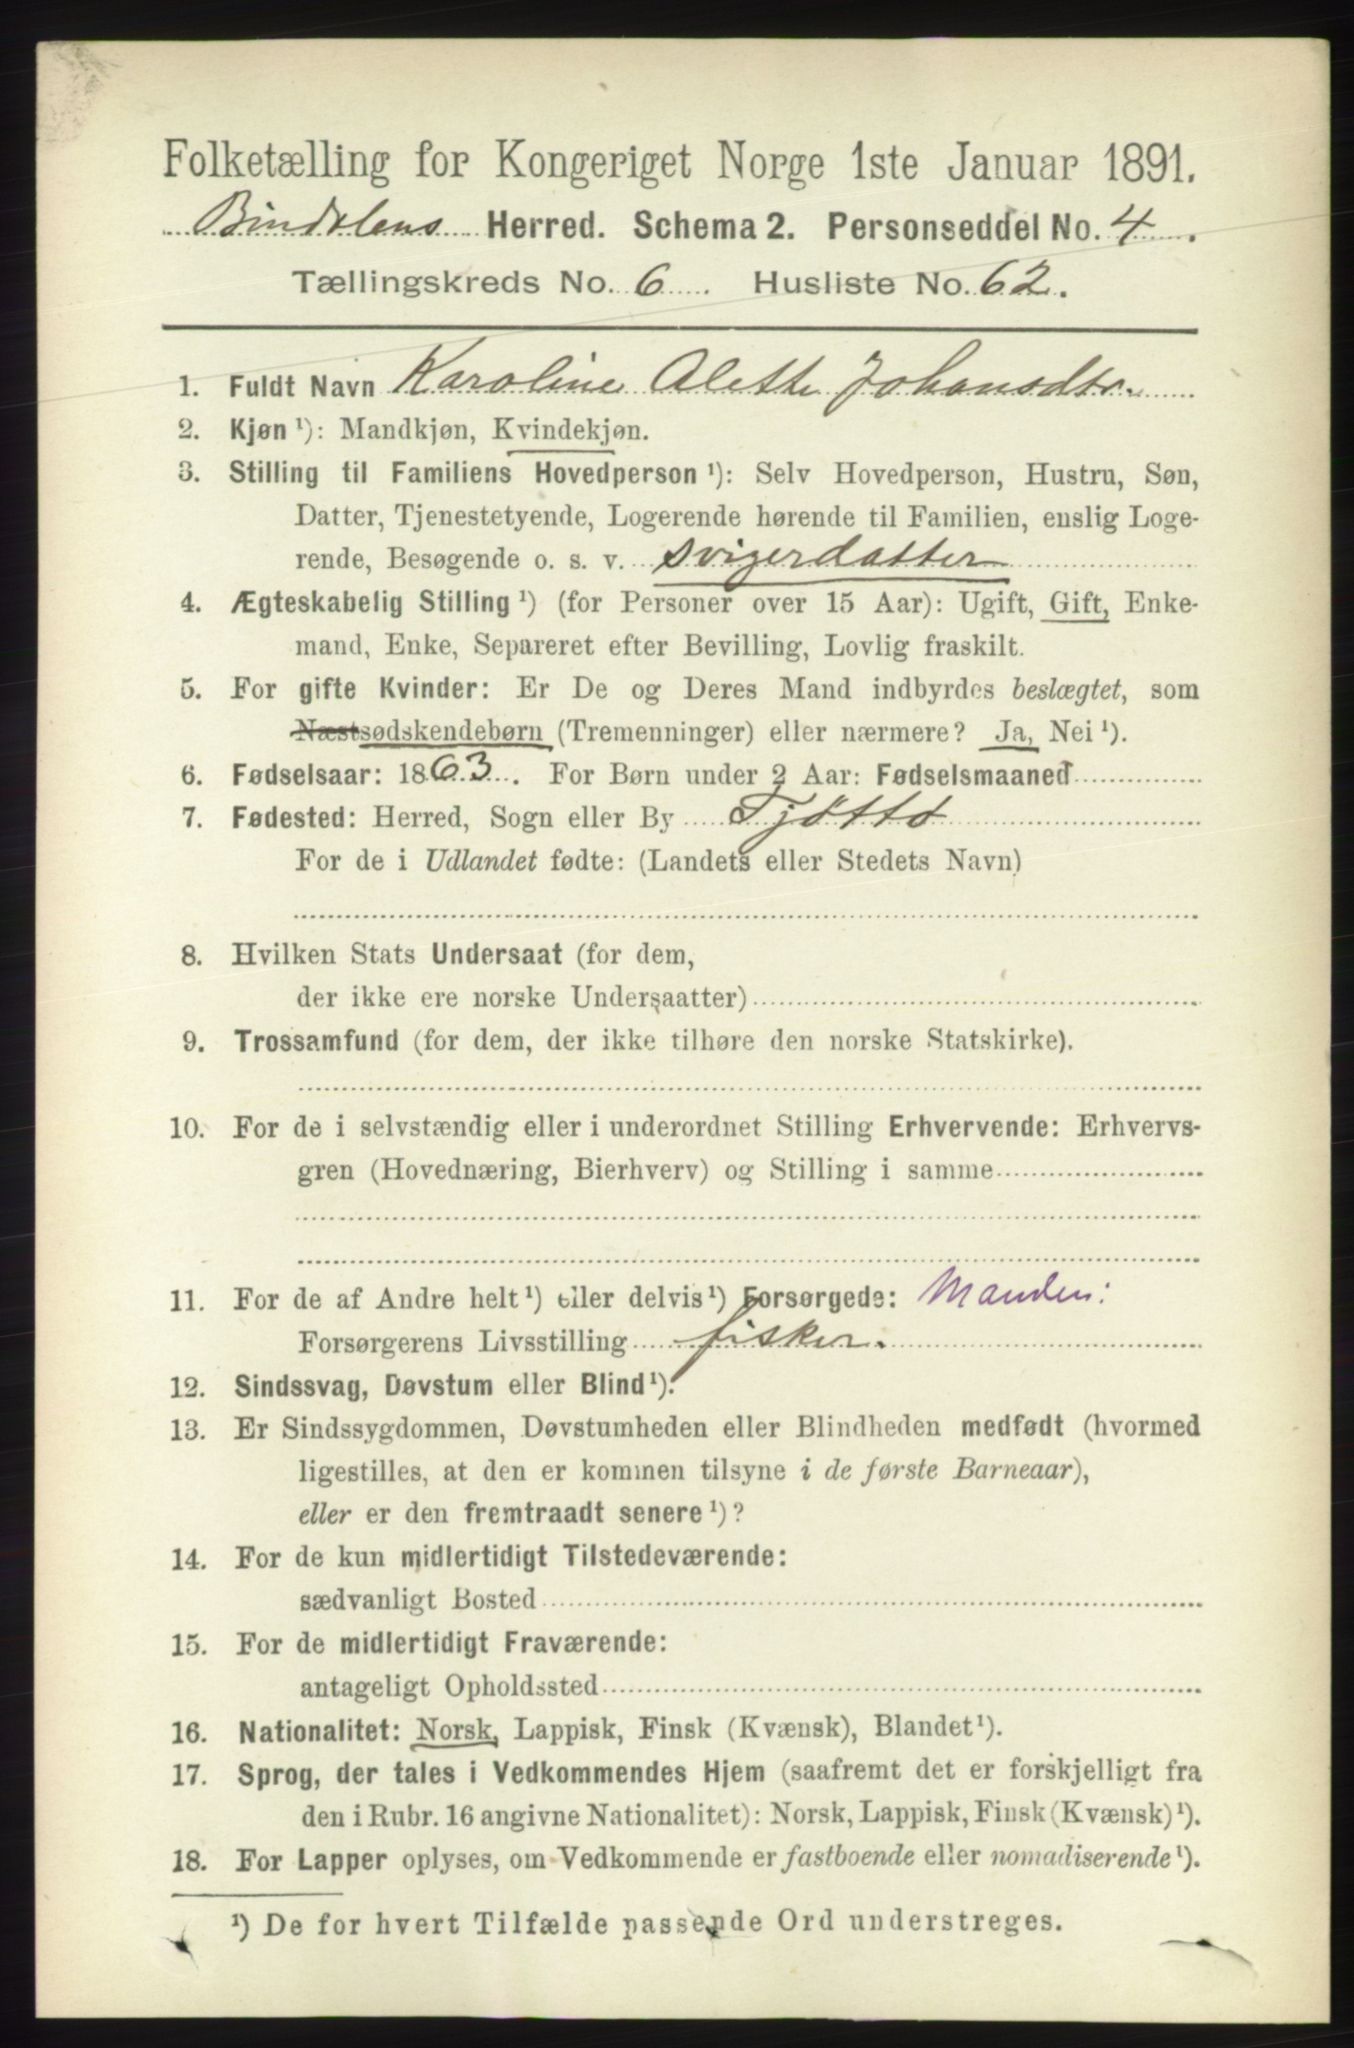 Folketælling for Kongeriget Norge 1ste Januar 1891.
Bindalens Herred. Schema 2. Personseddel No. 4.
Tællingskreds No. 6. Husliste No. 62.
1. Fuldt Navn Karoline Alette Johansdtr.
2. Kjøn ¹): Mandkjøn, Kvindekjøn.
3. Stilling til Familiens Hovedperson ¹): Selv Hovedperson, Hustru, Søn,
Datter, Tjenestetyende, Logerende hørende til Familien, enslig Loge-
rende, Besøgende o. s. v. svigerdatter
4. Ægteskabelig Stilling ¹) (for Personer over 15 Aar): Ugift, Gift, Enke-
mand, Enke, Separeret efter Bevilling, Lovlig fraskilt.
5. For gifte Kvinder: Er De og Deres Mand indbyrdes beslægtet, som
Næstsødskendebørn (Tremenninger) eller nærmere? Ja, Nei ¹).
6. Fødselsaar: 1863. For Børn under 2 Aar: Fødselsmaaned
7. Fødested: Herred, Sogn eller By Tjøttø
For de i Udlandet fødte: (Landets eller Stedets Navn)
8. Hvilken Stats Undersaat (for dem,
der ikke ere norske Undersaatter)
9. Trossamfund (for dem, der ikke tilhøre den norske Statskirke).
10. For de i selvstændig eller i underordnet Stilling Erhvervende: Erhvervs-
gren (Hovednæring, Bierhverv) og Stilling i samme
11. For de af Andre helt ¹) eller delvis ¹) Forsørgede: Manden:
Forsørgerens Livsstilling fisker.
12. Sindssvag, Døvstum eller Blind ¹).
13. Er Sindssygdommen, Døvstumheden eller Blindheden medfødt (hvormed
ligestilles, at den er kommen tilsyne i de første Barneaar),
eller er den fremtraadt senere ¹)?
14. For de kun midlertidigt Tilstedeværende:
sædvanligt Bosted
15. For de midlertidigt Fraværende:
antageligt Opholdssted
16. Nationalitet: Norsk, Lappisk, Finsk (Kvænsk), Blandet ¹).
17. Sprog, der tales i Vedkommendes Hjem (saafremt det er forskjelligt fra
den i Rubr. 16 angivne Nationalitet): Norsk, Lappisk, Finsk (Kvænsk) ¹).
18. For Lapper oplyses, om Vedkommende er fastboende eller nomadiserende ¹).
¹) De for hvert Tilfælde passende Ord understreges.